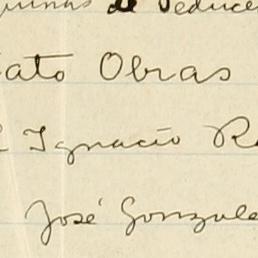 de Seduce
ato Obras
Ignacio R
José Gonzale